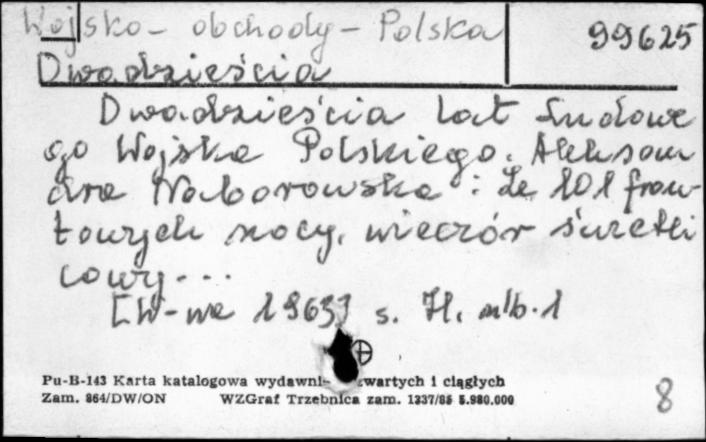 Wojsko - obchody - Polska 99625
Dwadzieścia
Dwadzieścia lat Ludowe
go Wojska Polskiego. Aleksan
dra Naborowska : Ze 101 fron-
towych nocy, wieczór świetli
cowy...
[W-wa 1963] s. 71. nlb. 1
Pu-B-143 Karta katalogowa wydawni- zwartych i ciągłych
Zam. 864/DW/ON WZGraf Trzebnica zam. 1337/85 5.980.000
8